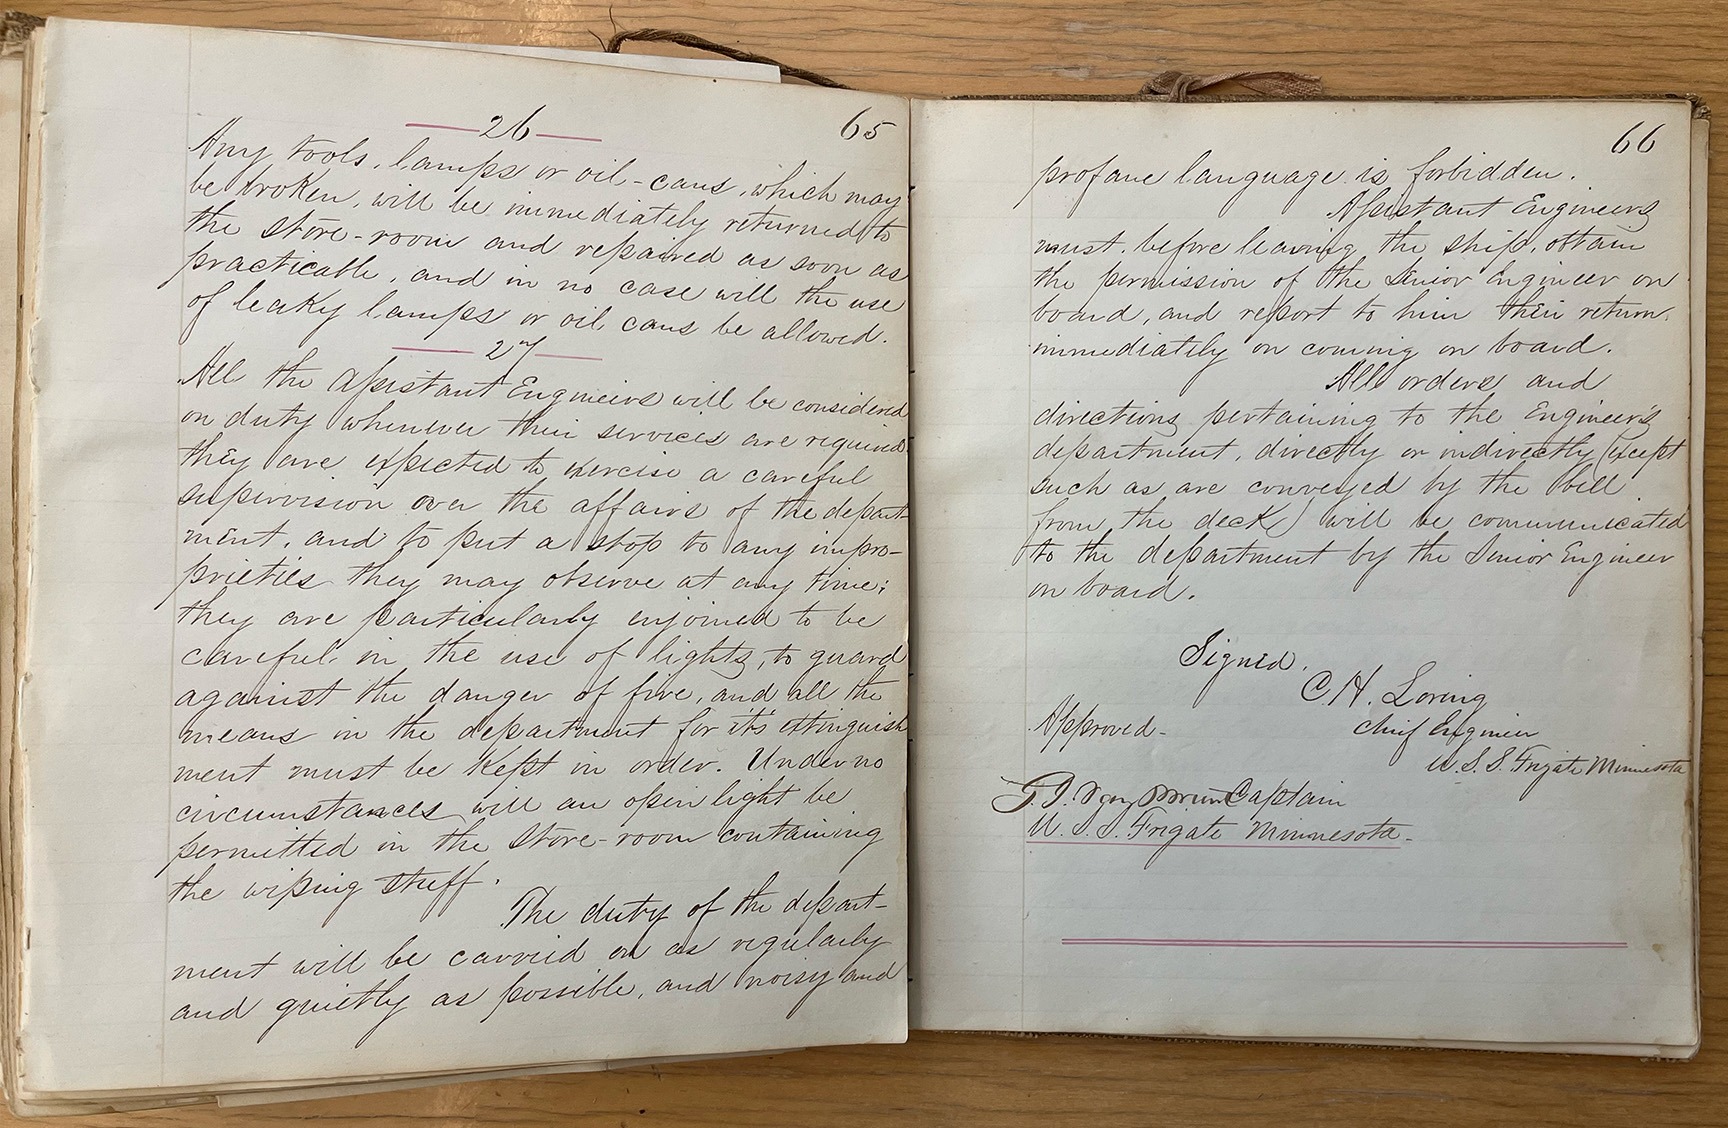 26
65
Any tools, lamps or oil-cans, which may
be broken, will be immediately returned to
the store-room and repaired as soon as
practicable, and in no case will the use
of leaky lamps or oil cans be allowed.
27
All the Assistant Engineers will be considered
on duty whenever their services are required.
they are expected to exercise a careful
supervision over the affairs of the depart-
ment, and to put a stop to any impro-
prieties they may observe at any time;
they are particularly enjoined to be
careful in the use of lights, to guard
against the danger of fire, and all the
means in the department for it's extinguish
ment must be kept in order. Under no
circumstances will an open light be
permitted in the store-room containing
the wiping stuff.
The duty of the depart-
ment will be carried on as regularly
and quietly as possible, and noisy and
66
profane language is forbidden.
Assistant Engineers
must, before leaving the ship, obtain
the permission of the Senior Engineer on
board, and report to him their return
immediately on coming on board.
All orders and
directions pertaining to the Engineer's
department, directly or indirectly (except
such as are conveyed by the bell
from the deck) will be communicated
to the department by the Senior Engineer
on board.
Signed.
C. H. Loring
Approved-
Chief Engineer
U.S.S. Frigate Minnesota
Captain
U.S.S. Frigate Minnesota-